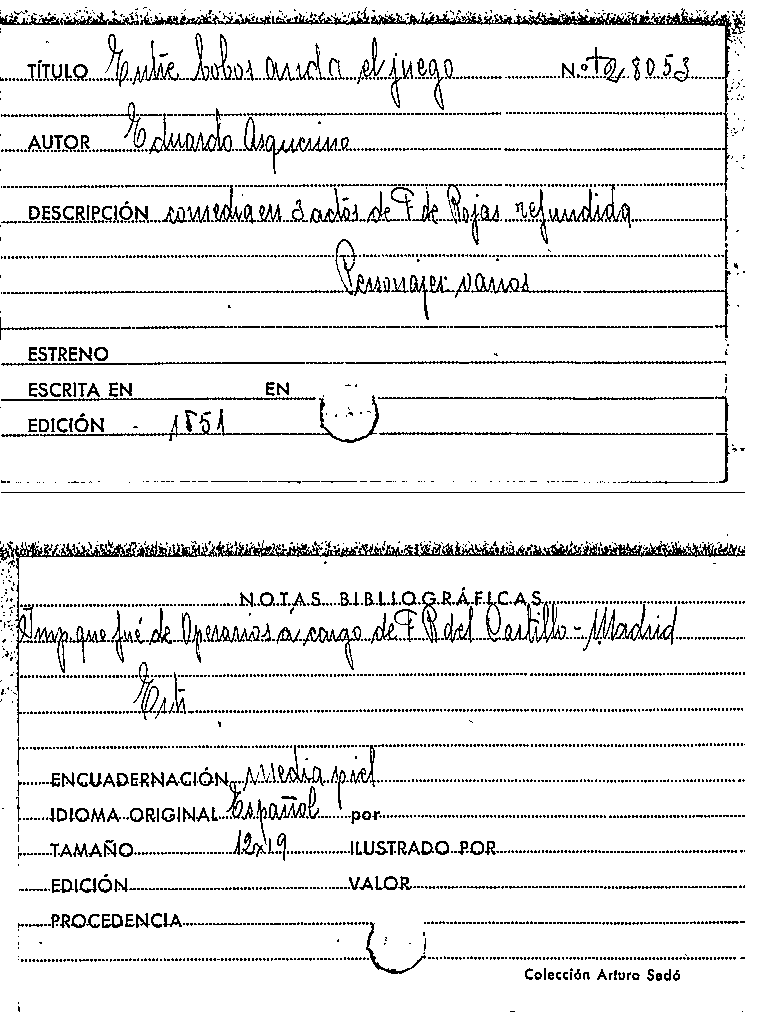 TÍTULO Entre bobos anda el juego N.º 28053
AUTOR Eduardo Asquerino
DESCRIPCIÓN comedia en 3 actos de F de Rojas refundida
Personajes varios
ESTRENO
ESCRITA EN EN
EDICIÓN 1851
NOTAS BIBLIOGRÁFICAS
Imp. que fué de Operarios á cargo de F R del Castillo - Madrid
ENCUADERNACIÓN Media piel
IDIOMA ORIGINAL Español por
TAMAÑO 12x19 ILUSTRADO POR
EDICIÓN VALOR
PROCEDENCIA
Colección Arturo Sedó